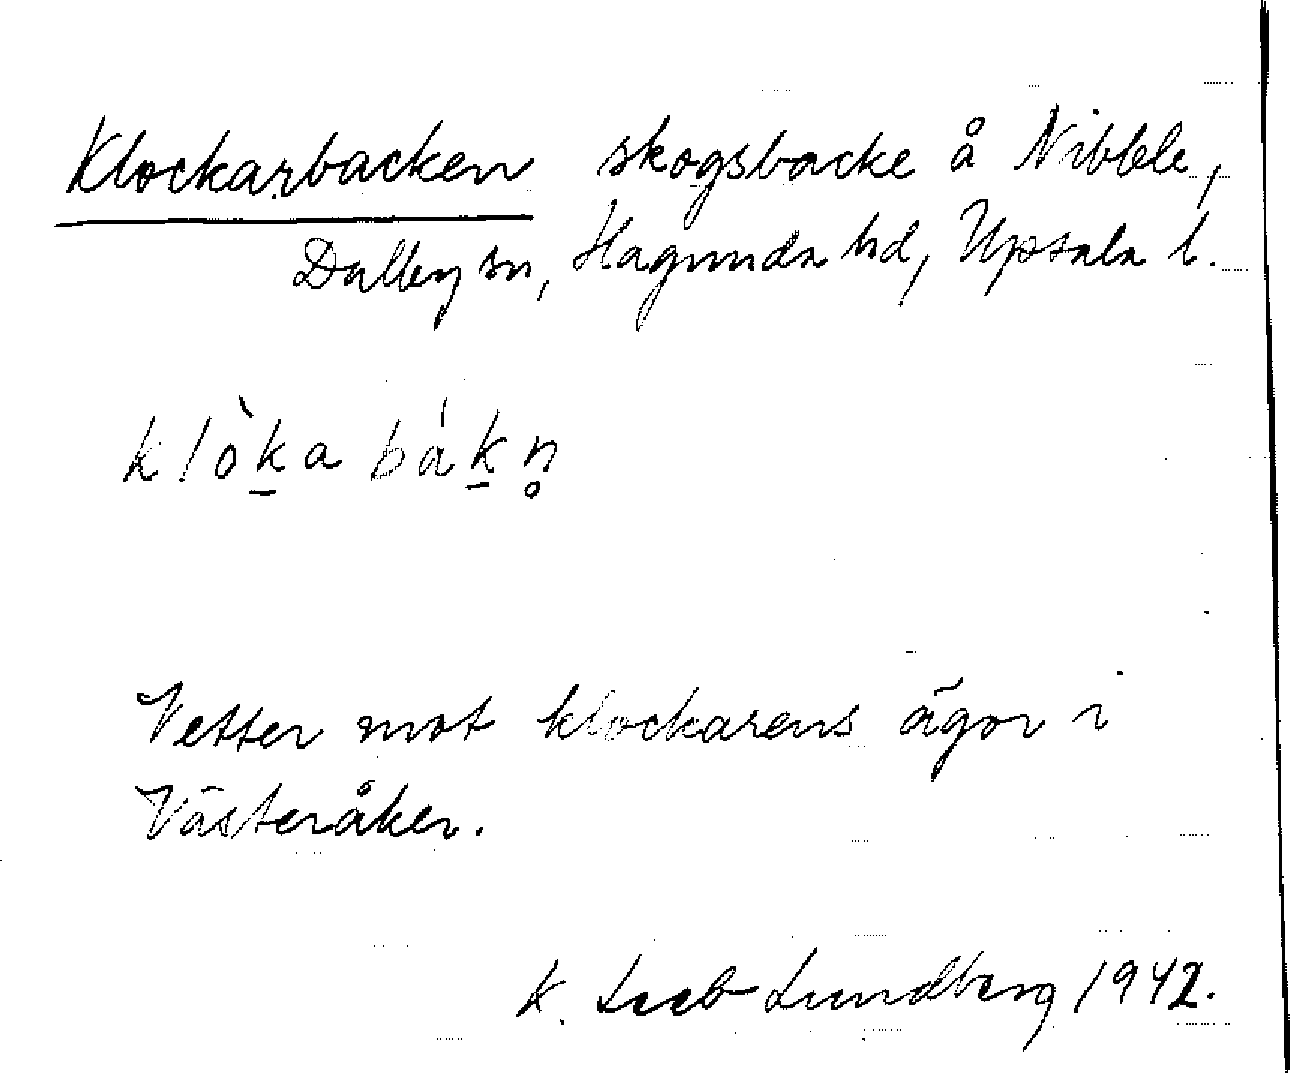 Klockarbacken skogsbacke å Nibble,
Dalby sn, Hagunda hd, Upsala l.
klòḵa báḵn̥
Vetter mot klockarens ägor i
Västeråker.
K. Leeb Lundberg 1942.